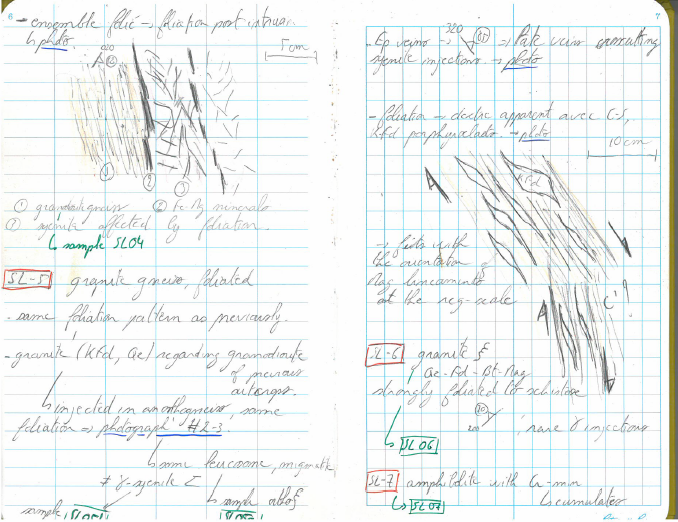 6
- ensemble folié → foliation post intrusion
↳ photo
5 cm
020
① ② ③
① granodiorite gneiss ② Fe-Mg minerals
③ syenite affected by foliation
↳ sample SL04
SL-5 granite gneiss, foliated
- same foliation pattern as previously.
- granite (Kfd, Qz) regarding granodiorite
of previous
outcrops.
↳ injected in an orthogneiss, same
foliation ⇒ photograph #2-3.
↳ some leucosome, migmatite
≠ γ-syenite
sample
↳ sample orthoξ
7
320
- Ep veins → 85 ⇒ Late vein crosscutting
syenite injections → photo
- foliation → dextre apparent avec C-S,
Kfd porphyroclasts → photo
10 cm
Kfd
→ fits with
the orientation of
Mag lineaments
at the reg-scale
C'
SL-6 granite ξ
Qz-Fd-Bt-Mag
strongly foliated to schistose
20
200
; rare γ injections
↳ SL06
SL-7 amphibolite with Gr-min
↳ SL07
↳ cumulates